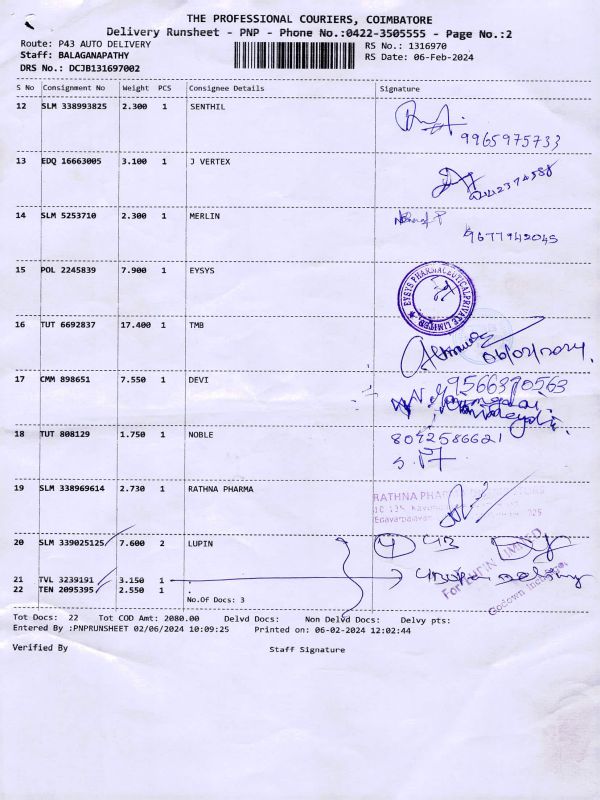 THE PROFESSIONAL COURIERS, COIMBATORE
Delivery Runsheet - PNP - Phone No.:0422-3505555 - Page No.:2
Route: P43 AUTO DELIVERY
RS No.: 1316970
Staff: BALAGANAPATHY
RS Date: 06-Feb-2024
DRS No.: DCJB131697002
S No Consignment No Weight PCS Consignee Details Signature
12 SLM 338993825 2.300 1 SENTHIL
9965975733
13 EDQ 16663005 3.100 1 J VERTEX
14 SLM 5253710 2.300 1 MERLIN
9677942045
15 POL 2245839 7.900 1 EYSYS
EYSYS PHARMACEUTICAL PRIVATE LIMITED
16 TUT 6692837 17.400 1 TMB
06/02/2024.
17 CMM 898651 7.550 1 DEVI
9566370563
18 TUT 808129 1.750 1 NOBLE
8042586621
19 SLM 338969614 2.730 1 RATHNA PHARMA
RATHNA PHAR
20 SLM 339025125 7.600 2 LUPIN
4
For LUPIN LIMITED
Godown Incharge
21 TVL 3239191 3.150 1
22 TEN 2095395 2.550 1
No.Of Docs: 3
Tot Docs: 22 Tot COD Amt: 2080.00 Delvd Docs: Non Delvd Docs: Delvy pts:
Entered By :PNPRUNSHEET 02/06/2024 10:09:25 Printed on: 06-02-2024 12:02:44
Verified By Staff Signature